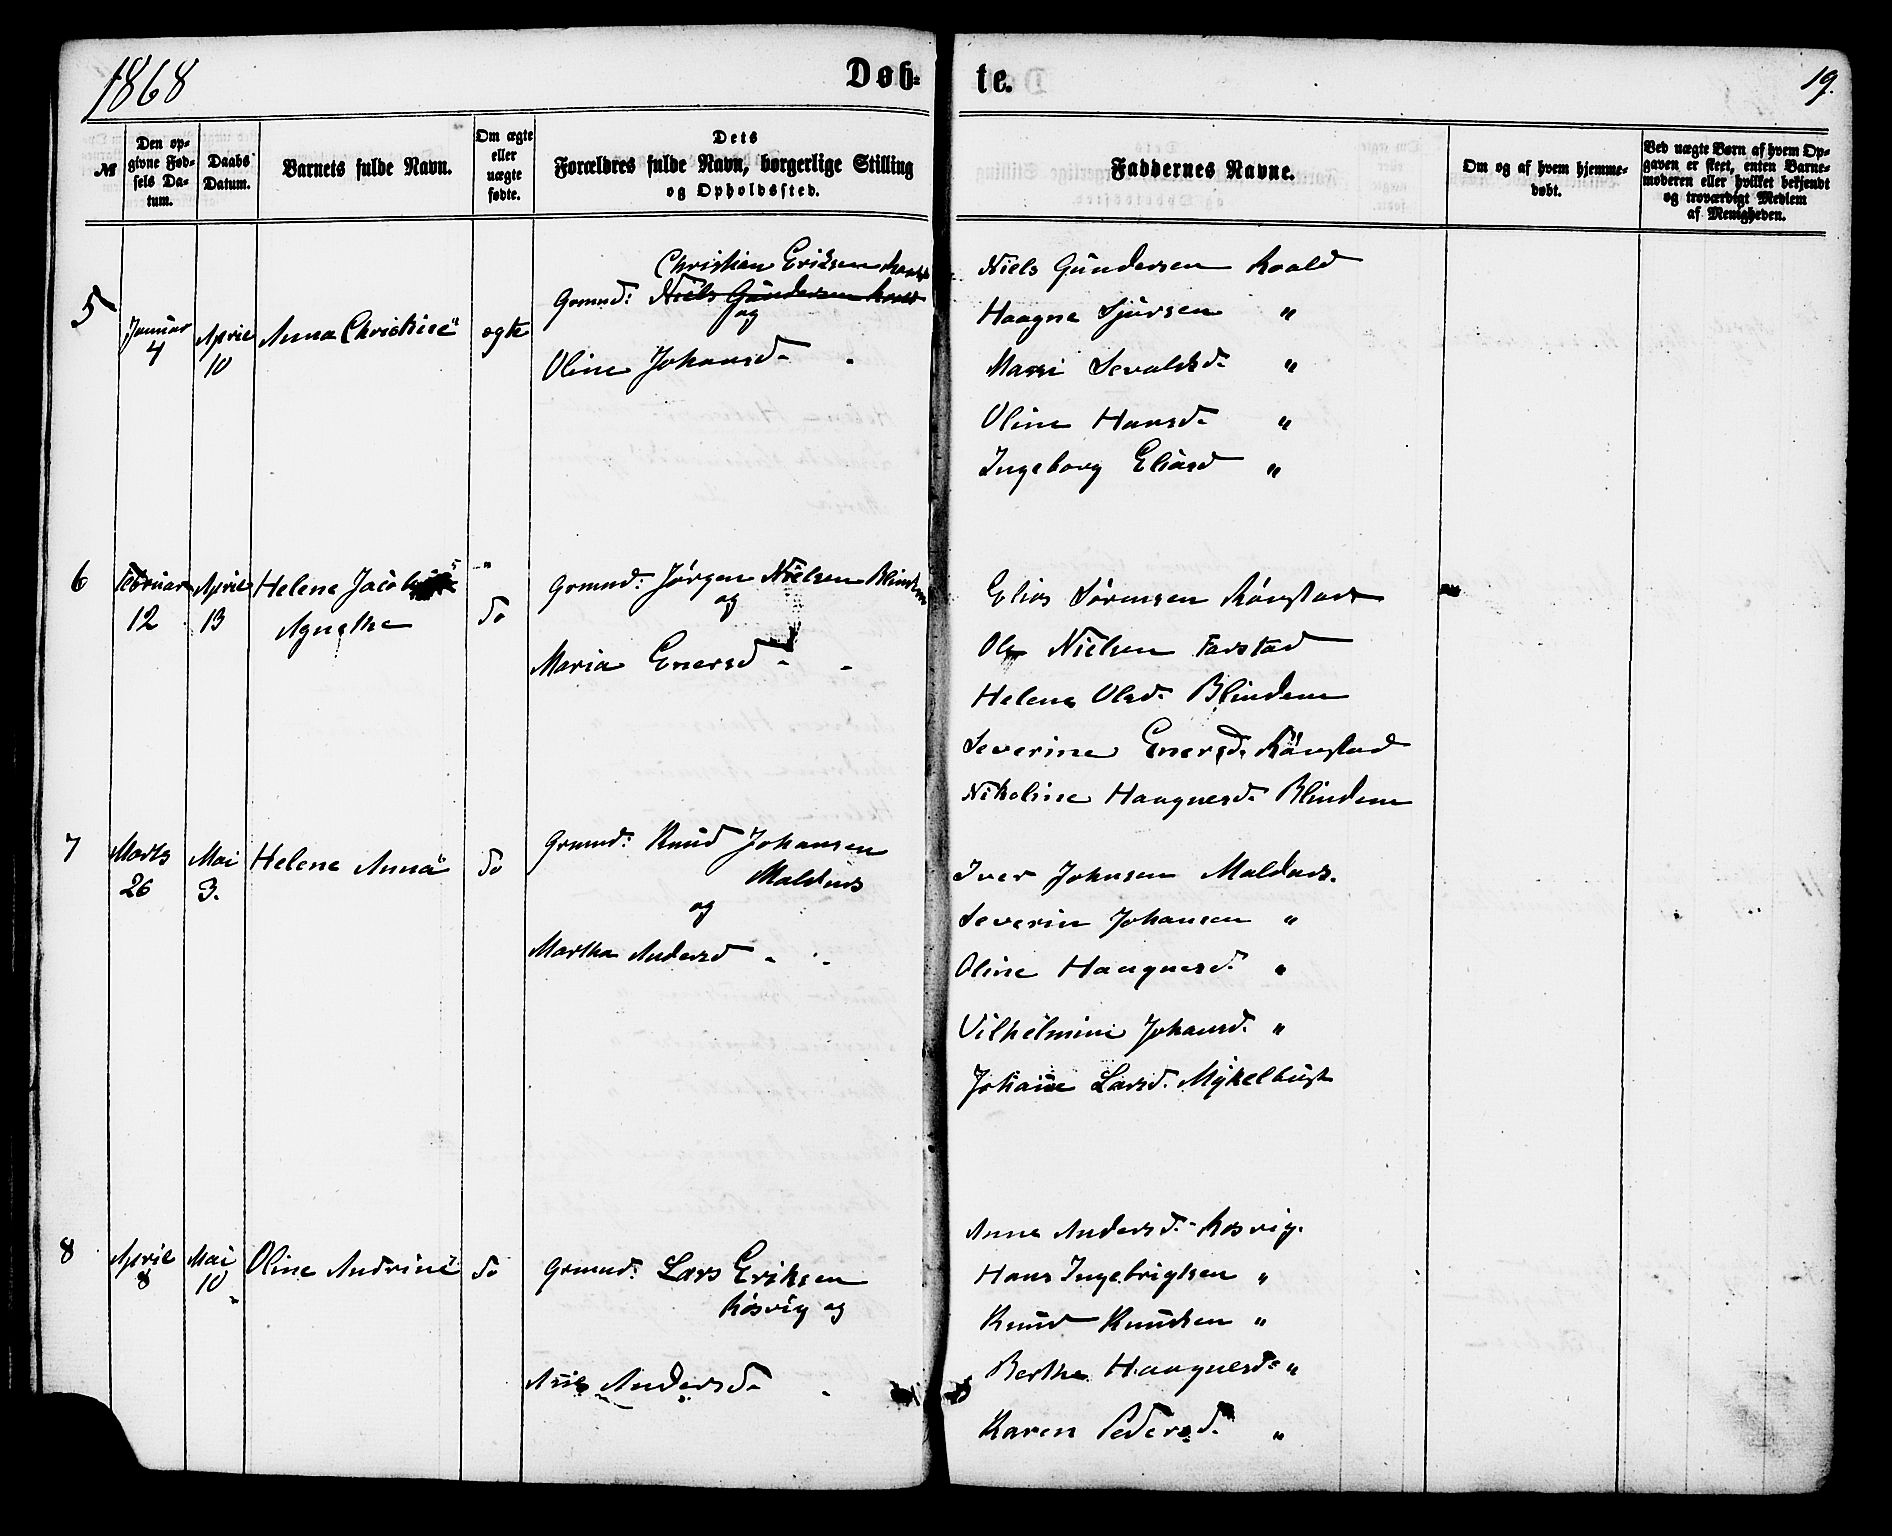 1868
Døb-
te.
19.
№
Den op-
givne Fød-
sels Da-
tum.
Daabs
Datum.
Barnets fulde Navn.
Om ægte
eller
uægte
fødte.
Dets
Forældres fulde Navn, borgerlige Stilling
og Opholdssted.
Faddernes Navne.
Om og af hvem hjemme-
døbt.
Ved uægte Børn af hvem Op-
gaven er skeet, enten Barne-
moderen eller hvilket bekjendt
og troværdigt Medlem
af Menigheden.
5
Januar
4
April
10
Anna Christine
ægte
Christian Eriksen Roald
Grmnd: Niels Gundersen Roald
og
Oline Johansd. "
Niels Gundersen Roald
Haagne Sjursen "
Massi Sevaldsd. "
Oline Hansd. "
Ingeborg Eliasd "
6
Februar
12
April
13
Helene
Agnethe
"
do
Grmnd: Jørgen Nielsen Blindem
og
Maria Enersd - -
Elias Sørensen Rønstad
Ole Nielsen Farstad
Helene Olsd. Blindem
Severine Enersd. Rønstad
Nikoline Haagnesd. Blindem
7
Marts
26
Mai
3.
Helene Anna
do
Grmnd: Knud Johansen
Maldnes
og
Martha Andersd - -
Iver Johnsen Maldnes.
Severin Johansen "
Oline Haagnesd. "
Vilhelmine Johansd. "
Johanne Larsd. Myklebust
8
April
8
Mai
10
Oline Andrine
do
Grmnd: Lars Eriksen
Røsvig og
Andersd. -
Anne Andersd. Røsvig.
Hans Ingebrigtsen "
Knud Knudsen "
Berthe Haagnesd. "
Karen Pedersd. "